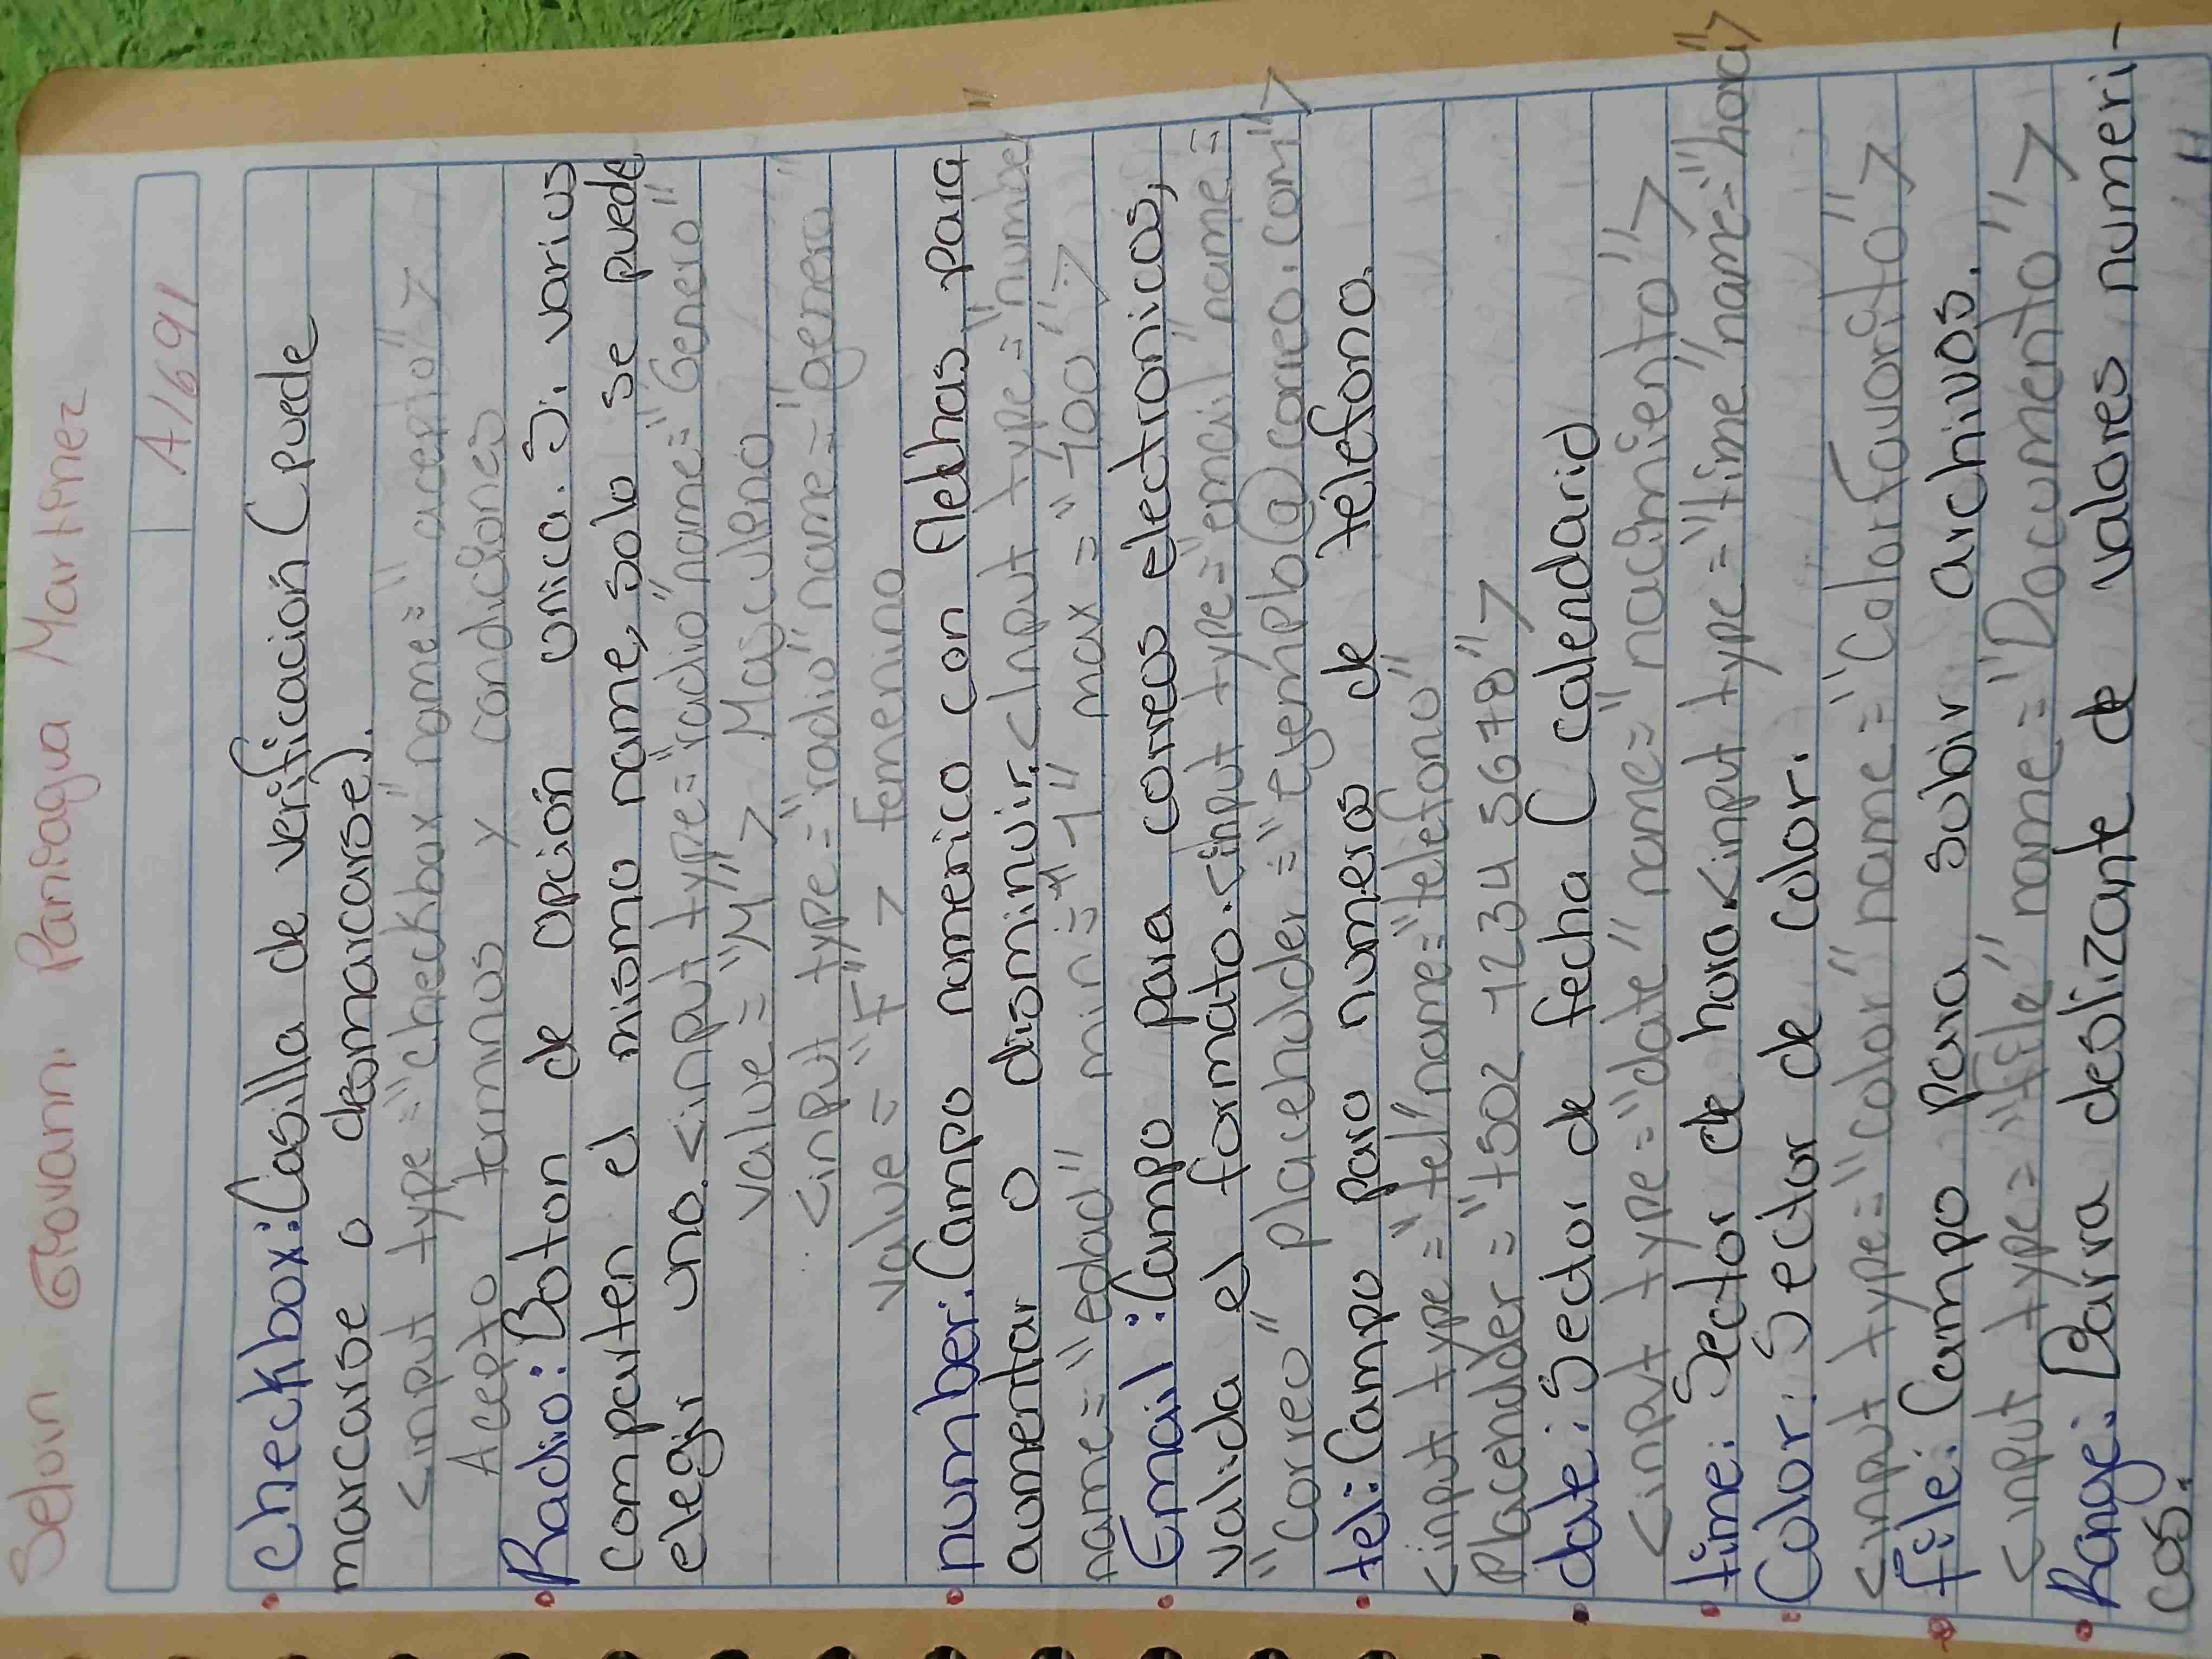 Selvin Giovanni Paniagua Martinez
A1691
Checkbox: Casilla de verificación (puede
marcarse o desmarcarse).
<input type="checkbox" name="acepto">
Acepto terminos y condiciones
Radio: Boton de opción unica. Si varius
comparten el mismo name, solo se puede
elegir uno. <input type="radio" name="Genero"
value="M"> Masculeno
<input type="radio" name="genero"
value="F"> femenino
number: Campo numerico con flechas para
aumentar o disminuir. <Input type="number"
name="edad" min="1" max="100">
Email: Campo para correos electronicos,
valida el formato. <input type="email" name=
"correo" placehulder="ejemplo@correo.com">
tel: Campo para numeros de telefono.
<input type="tel" name="telefono"
Placehulder="+502 1234 5678">
date: Sector de fecha (calendario
<input type="date" name="nacimiento">
time: Sector de hora. <input type="time" name="hora">
Color: Sector de color.
<input type="color" name="ColorFavorito">
file: Campo para subir archivos.
<input type="file" name="Documento">
Range: Barra deslizante de valores numeri-
cos.